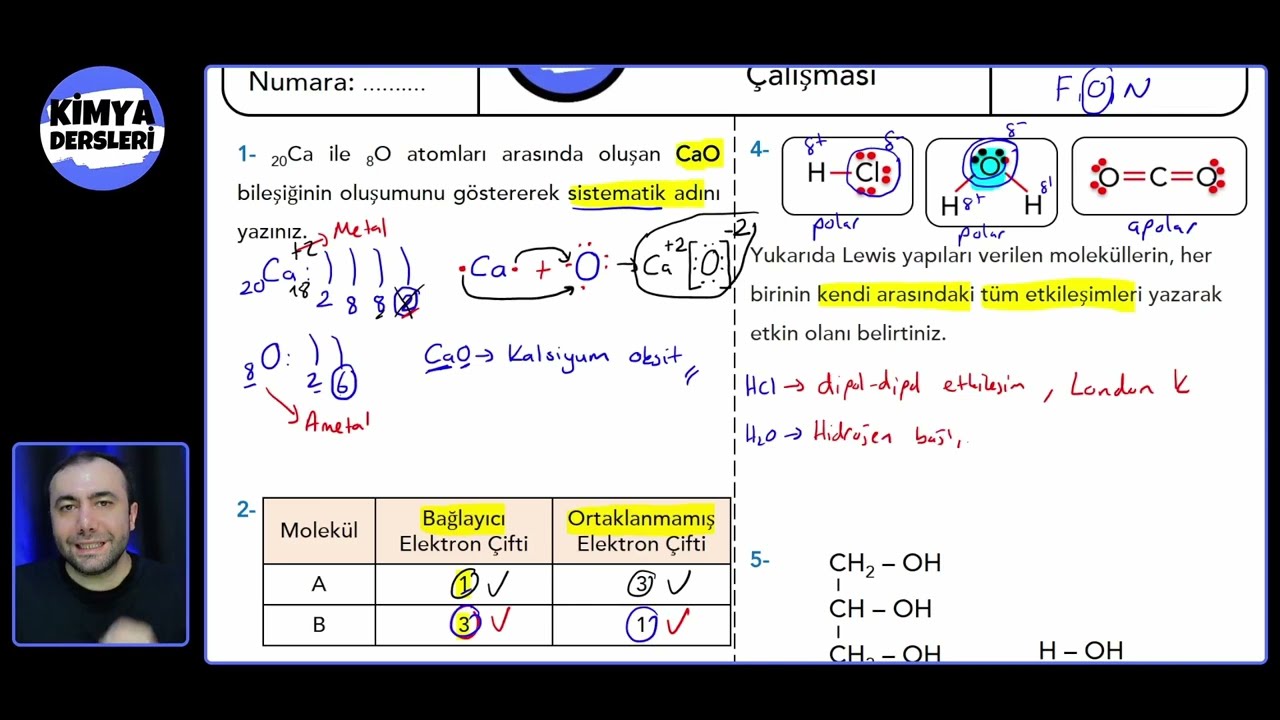 KİMYA
DERSLERİ
Numara: ..........
Çalışması
F O N
1- ₂₀Ca ile ₈O atomları arasında oluşan CaO
bileşiğinin oluşumunu göstererek sistematik adını
yazınız.
Metal
+2
₂₀Ca: ) ) ) )
18 2 8 8 2
•Ca• + O → Ca⁺² [O]⁻²
₈O: ) )
2 6
Ametal
CaO → Kalsiyum oksit
2-
Molekül
Bağlayıcı
Elektron Çifti
Ortaklanmamış
Elektron Çifti
A 1 ✓ 3 ✓
B 3 ✓ 1 ✓
4-
δ+ δ-
H–Cl
polar
δ-
O
H δ+ H δ+
polar
O=C=O
apolar
Yukarıda Lewis yapıları verilen moleküllerin, her
birinin kendi arasındaki tüm etkileşimleri yazarak
etkin olanı belirtiniz.
HCl → dipol-dipol etkileşim, London K
H₂O → Hidrojen bağı,
5-
CH₂ – OH
CH – OH
CH₂ – OH
H – OH